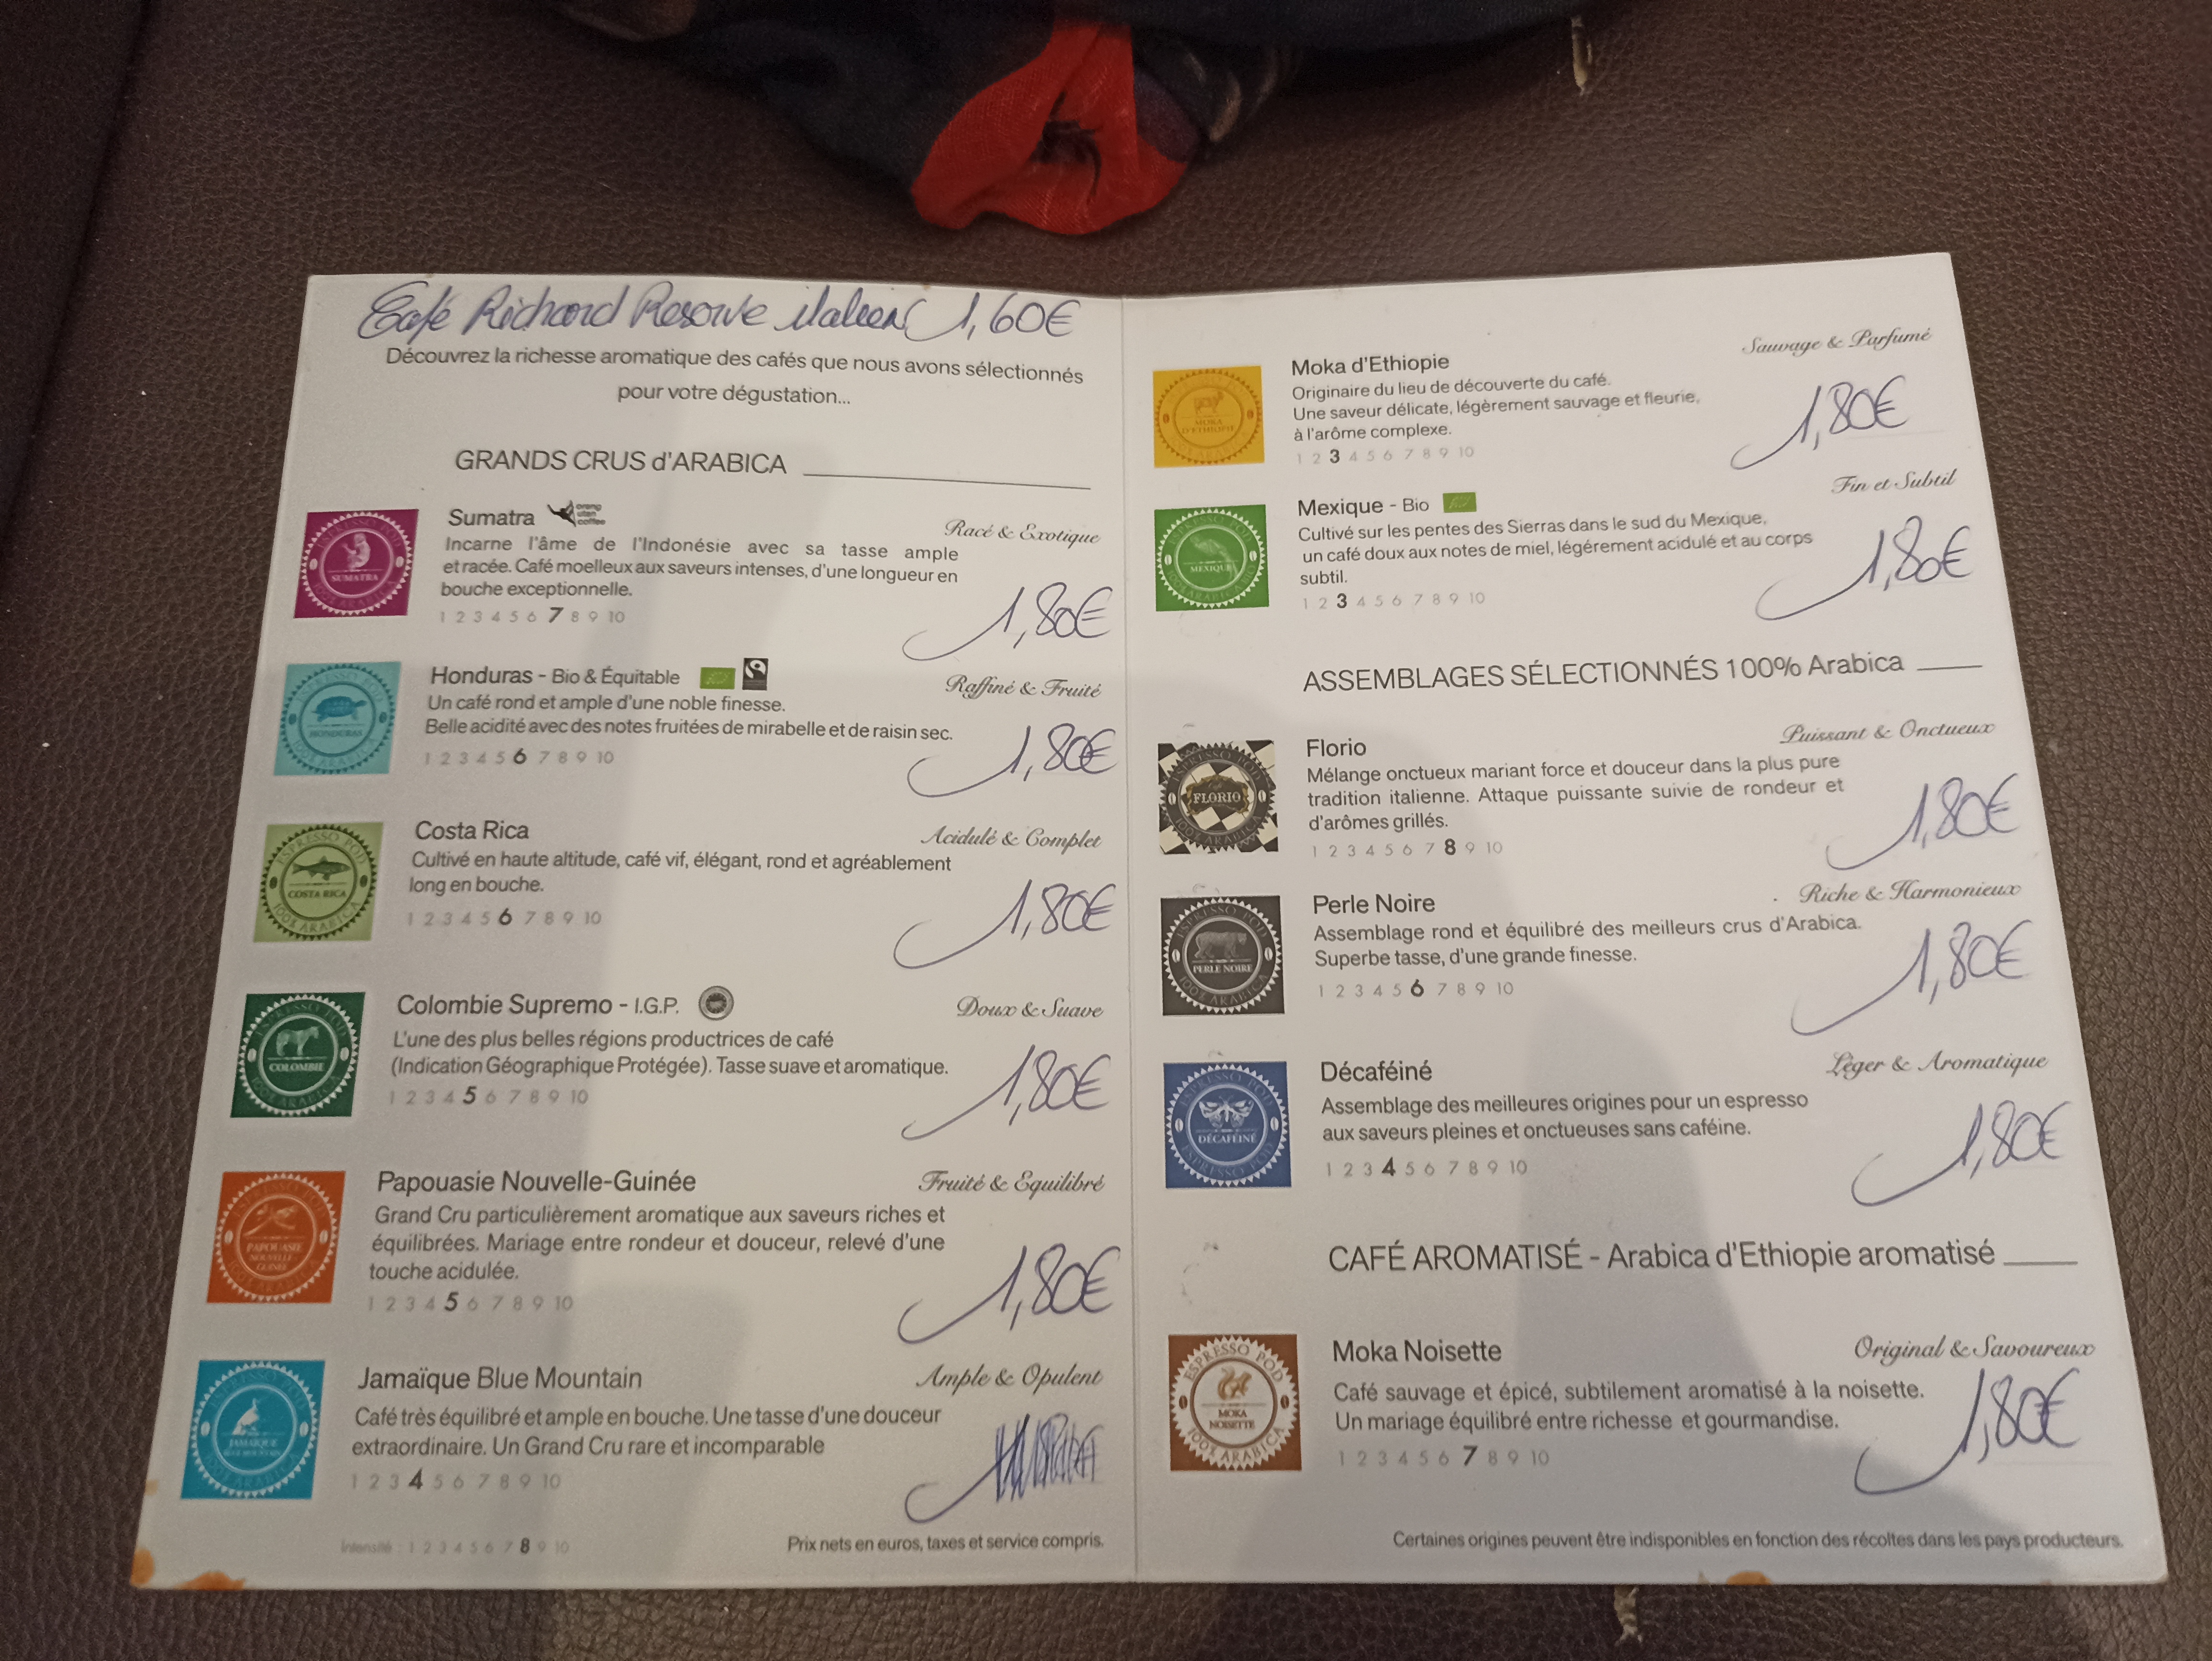 Café Richard Reserve italien 1,60€
Découvrez la richesse aromatique des cafés que nous avons sélectionnés
pour votre dégustation...
GRANDS CRUS d'ARABICA
SUMATRA
Sumatra
orang
utan
coffee
Racé & Exotique
Incarne l'âme de l'Indonésie avec sa tasse ample
et racée. Café moelleux aux saveurs intenses, d'une longueur en
bouche exceptionnelle.
1,80€
1 2 3 4 5 6 7 8 9 10
HONDURAS
Honduras - Bio & Équitable
Raffiné & Fruité
Un café rond et ample d'une noble finesse.
Belle acidité avec des notes fruitées de mirabelle et de raisin sec.
1,80€
1 2 3 4 5 6 7 8 9 10
ESPRESSO POD
COSTA RICA
100% ARABICA
Costa Rica
Acidulé & Complet
Cultivé en haute altitude, café vif, élégant, rond et agréablement
long en bouche.
1,80€
1 2 3 4 5 6 7 8 9 10
COLOMBIE
Colombie Supremo - I.G.P.
Doux & Suave
L'une des plus belles régions productrices de café
(Indication Géographique Protégée). Tasse suave et aromatique.
1,80€
1 2 3 4 5 6 7 8 9 10
PAPOUASIE
NOUVELLE-
GUINÉE
Papouasie Nouvelle-Guinée
Fruité & Equilibré
Grand Cru particulièrement aromatique aux saveurs riches et
équilibrées. Mariage entre rondeur et douceur, relevé d'une
touche acidulée.
1,80€
1 2 3 4 5 6 7 8 9 10
JAMAÏQUE
BLUE MOUNTAIN
Jamaïque Blue Mountain
Ample & Opulent
Café très équilibré et ample en bouche. Une tasse d'une douceur
extraordinaire. Un Grand Cru rare et incomparable
1 2 3 4 5 6 7 8 9 10
Intensité : 1 2 3 4 5 6 7 8 9 10
Prix nets en euros, taxes et service compris.
MOKA
D'ETHIOPIE
Moka d'Ethiopie
Sauvage & Parfumé
Originaire du lieu de découverte du café.
Une saveur délicate, légèrement sauvage et fleurie,
à l'arôme complexe.
1,80€
1 2 3 4 5 6 7 8 9 10
MEXIQUE
Mexique - Bio
Fin et Subtil
Cultivé sur les pentes des Sierras dans le sud du Mexique,
un café doux aux notes de miel, légérement acidulé et au corps
subtil.
1,80€
1 2 3 4 5 6 7 8 9 10
ASSEMBLAGES SÉLECTIONNÉS 100% Arabica
FLORIO
Florio
Puissant & Onctueux
Mélange onctueux mariant force et douceur dans la plus pure
tradition italienne. Attaque puissante suivie de rondeur et
d'arômes grillés.
1,80€
1 2 3 4 5 6 7 8 9 10
ESPRESSO POD
PERLE NOIRE
100% ARABICA
Perle Noire
Riche & Harmonieux
Assemblage rond et équilibré des meilleurs crus d'Arabica.
Superbe tasse, d'une grande finesse.
1,80€
1 2 3 4 5 6 7 8 9 10
ESPRESSO POD
DÉCAFÉINÉ
ESPRESSO POD
Décaféiné
Léger & Aromatique
Assemblage des meilleures origines pour un espresso
aux saveurs pleines et onctueuses sans caféine.
1,80€
1 2 3 4 5 6 7 8 9 10
CAFÉ AROMATISÉ - Arabica d'Ethiopie aromatisé
ESPRESSO POD
MOKA
NOISETTE
100% ARABICA
Moka Noisette
Original & Savoureux
Café sauvage et épicé, subtilement aromatisé à la noisette.
Un mariage équilibré entre richesse et gourmandise.
1,80€
1 2 3 4 5 6 7 8 9 10
Certaines origines peuvent être indisponibles en fonction des récoltes dans les pays producteurs.